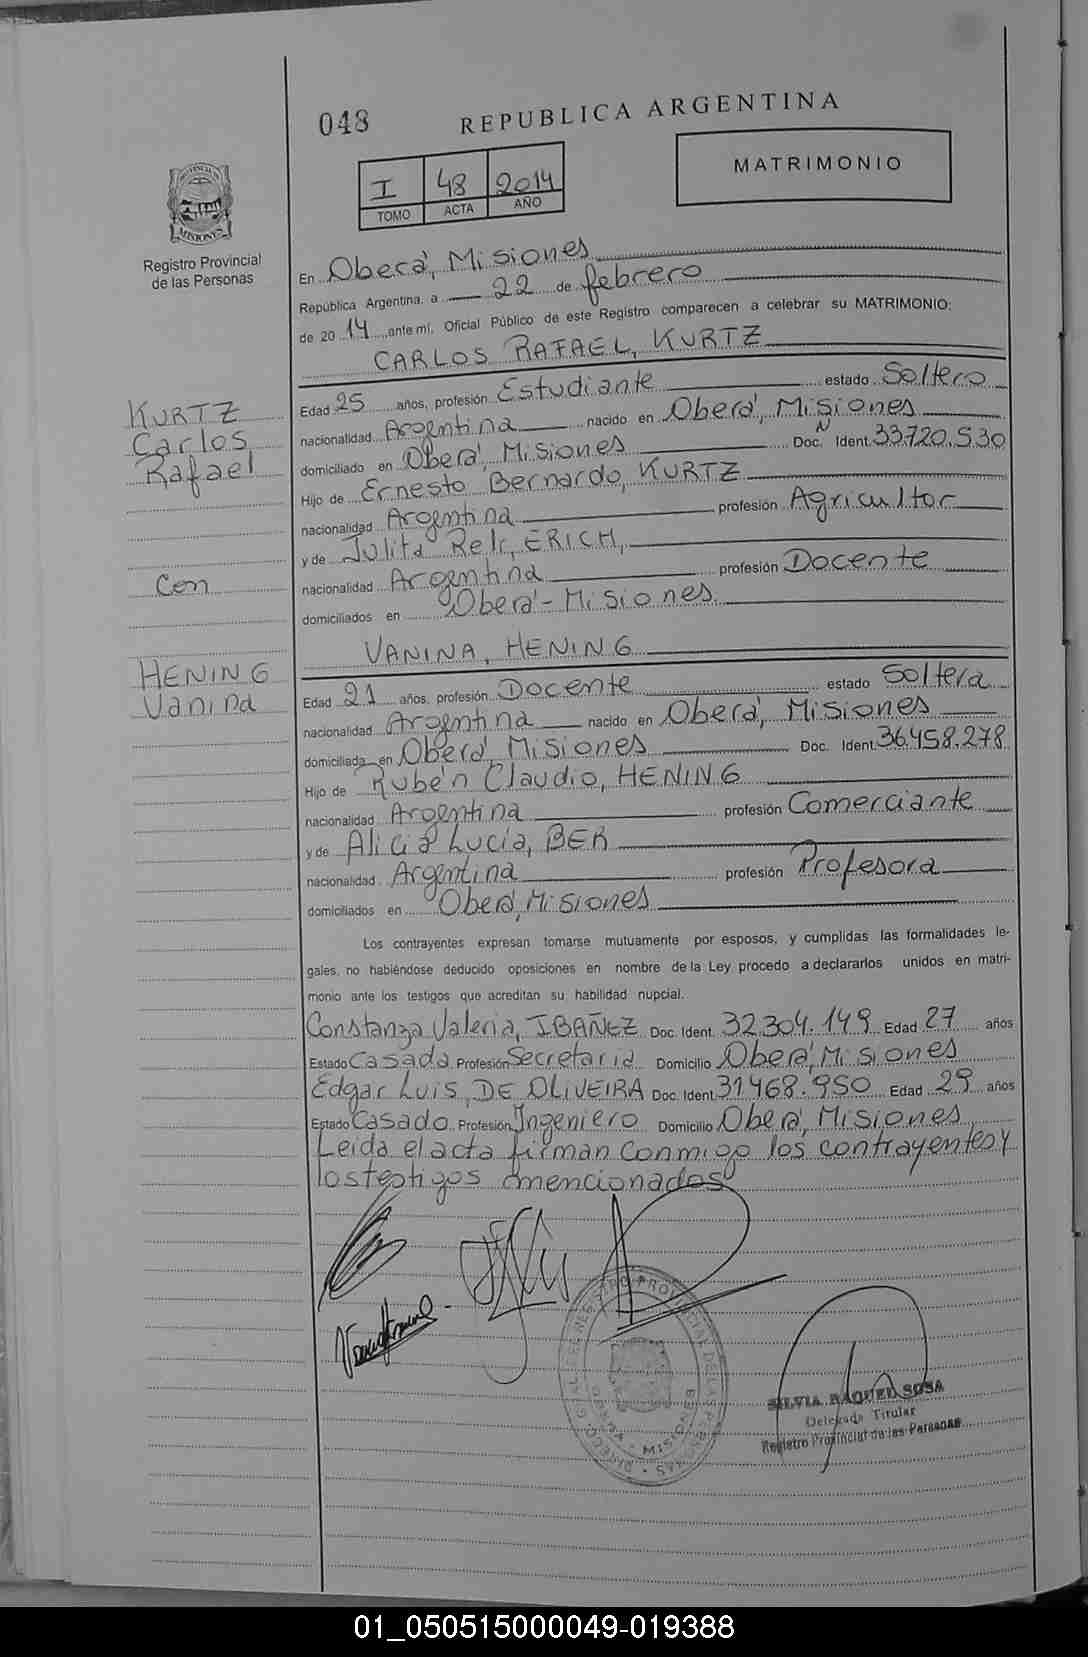 048
REPUBLICA ARGENTINA
I 48 2014
TOMO ACTA AÑO
MATRIMONIO
PROVINCIA DE
MISIONES
Registro Provincial
de las Personas
En Oberá, Misiones
República Argentina, a 22 de febrero
de 2014 ante mí, Oficial Público de este Registro comparecen a celebrar su MATRIMONIO:
CARLOS RAFAEL, KURTZ
KURTZ
Carlos
Rafael
Con
HENING
Vanina
Edad 25 años, profesión Estudiante estado Soltero
nacionalidad Argentina nacido en Oberá, Misiones
domiciliado en Oberá, Misiones Doc. N Ident. 33.720.530
Hijo de Ernesto Bernardo, KURTZ
nacionalidad Argentina profesión Agricultor
y de Julita ERICH,
nacionalidad Argentina profesión Docente
domiciliados en Oberá - Misiones
VANINA, HENING
Edad 21 años, profesión Docente estado Soltera
nacionalidad Argentina nacido en Oberá, Misiones
domiciliada en Oberá, Misiones Doc. Ident. 36.458.278
Hijo de Rubén Claudio, HENING
nacionalidad Argentina profesión Comerciante
y de Alicia Lucía, BER
nacionalidad Argentina profesión Profesora
domiciliados en Oberá, Misiones
Los contrayentes expresan tomarse mutuamente por esposos, y cumplidas las formalidades le-
gales, no habiéndose deducido oposiciones en nombre de la Ley procedo a declararlos unidos en matri-
monio ante los testigos que acreditan su habilidad nupcial.
Constanza Valeria, IBAÑEZ Doc. Ident. 32.304.149 Edad 27 años
Estado Casada Profesión Secretaria Domicilio Oberá, Misiones
Edgar Luis, DE OLIVEIRA Doc. Ident. 31.468.950 Edad 29 años
Estado Casado Profesión Ingeniero Domicilio Oberá, Misiones
Leida el acta firman conmigo los contrayentes y
los testigos mencionados
SILVIA RAQUEL SOSA
Delegada Titular
Registro Provincial de las Personas
01_050515000049-019388